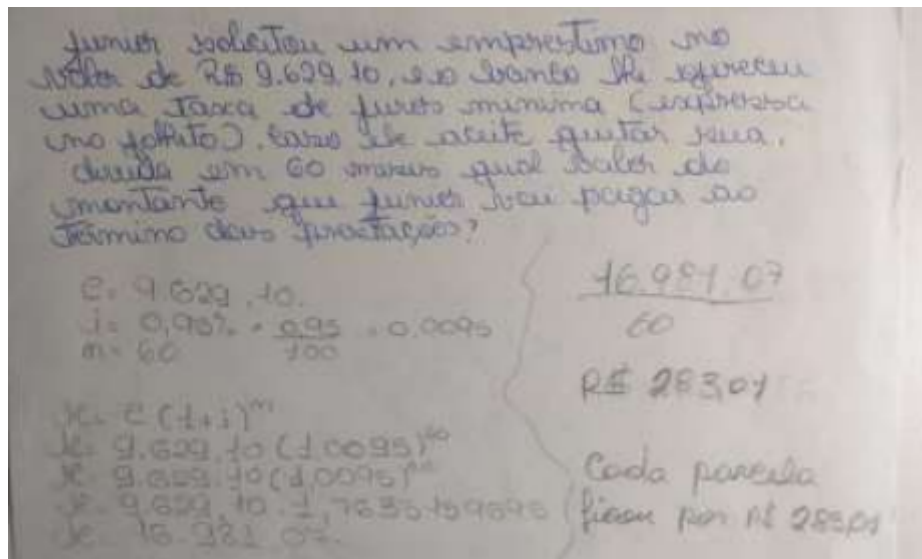 Junior solicitou um emprestimo no
valor de R$ 9.629,10, e o banco lhe ofereceu
uma taxa de juros minima (expressa
no folheto). Caso ele aceite quitar sua
divida em 60 meses qual valor do
montante que junior vai pagar ao
término das prestações?
C= 9.629,10.
i= 0,95% = 0,95/100 = 0,0095
n= 60
C (1+i)^n
9.629,10 (1,0095)^60
9.629,10 (1,0095)^60
9.629,10 . 1,7635159695
16.981,07
16.981,07
60
R$ 283,01
Cada parcela
ficou por R$ 283,01